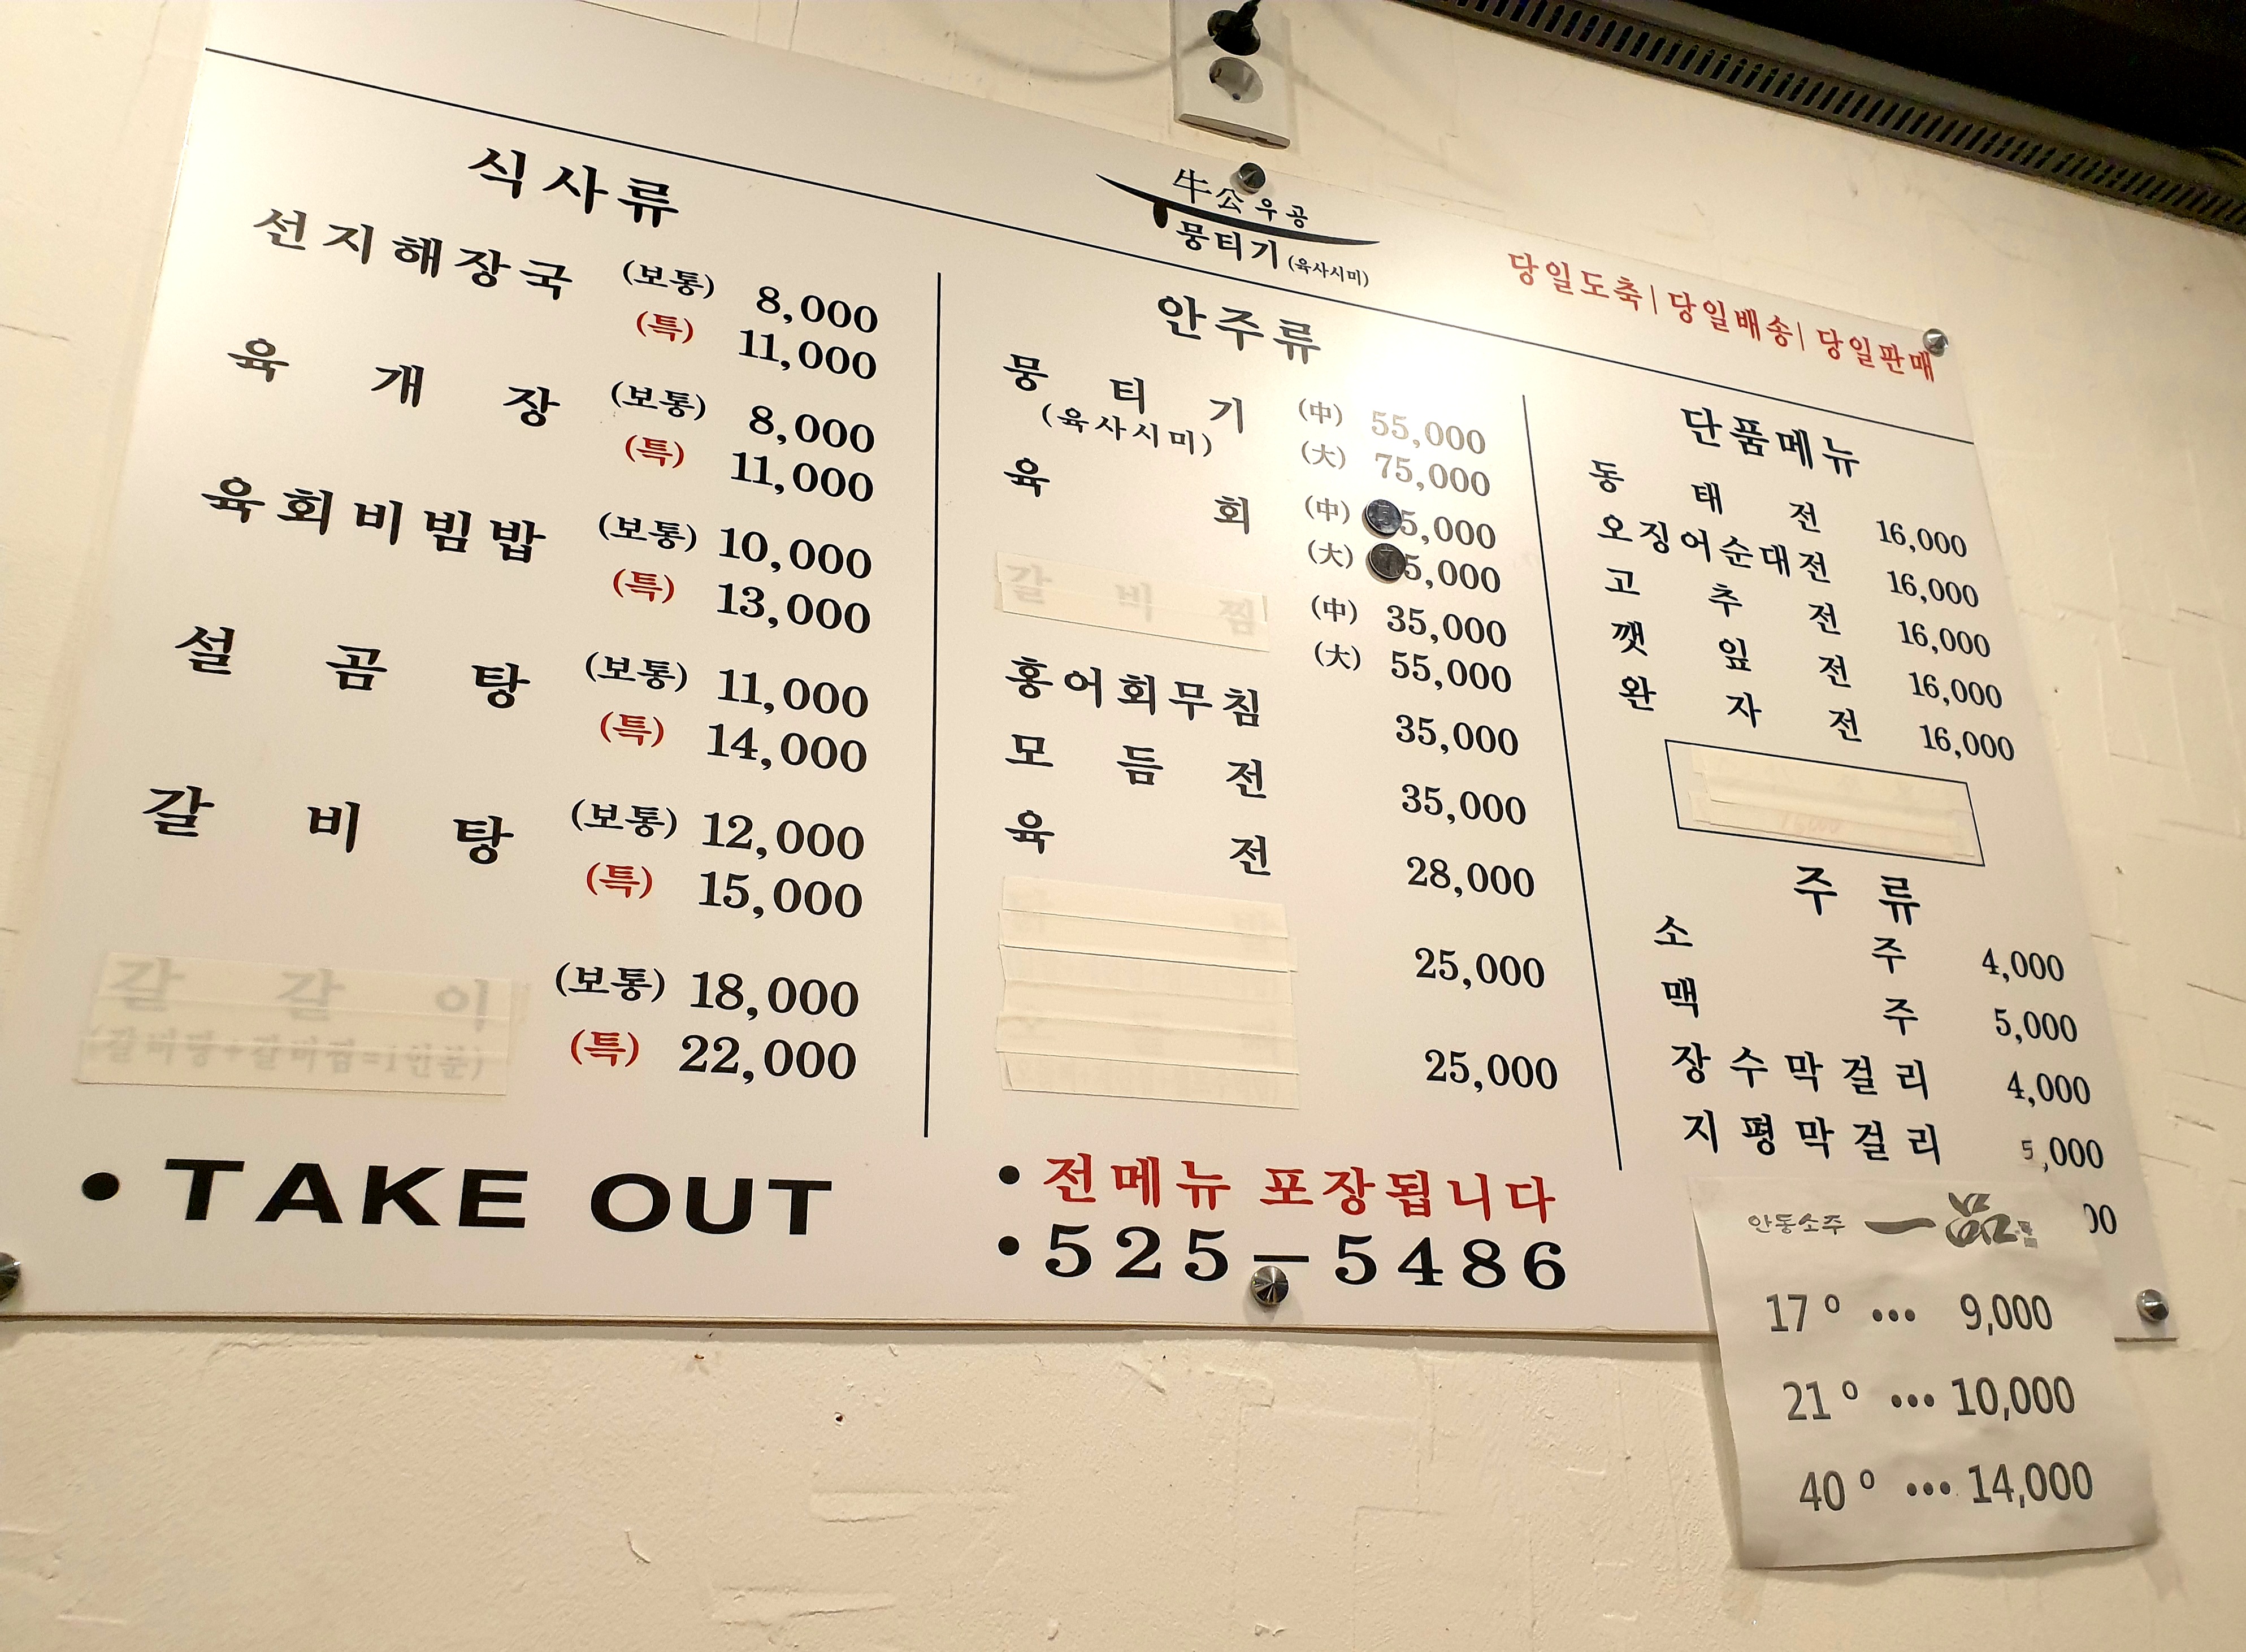 牛公우공
뭉티기 (육사시미)
당일도축 | 당일배송 | 당일판매
식사류
선지해장국 (보통) 8,000
(특) 11,000
육개장 (보통) 8,000
(특) 11,000
육회비빔밥 (보통) 10,000
(특) 13,000
설곰탕 (보통) 11,000
(특) 14,000
갈비탕 (보통) 12,000
(특) 15,000
갈갈이 (보통) 18,000
(갈비탕+갈비찜=1인분) (특) 22,000
• TAKE OUT
안주류
뭉티기 (中) 55,000
(육사시미) (大) 75,000
육회 (中) 55,000
(大) 75,000
갈비찜 (中) 35,000
(大) 55,000
홍어회무침 35,000
모듬전 35,000
육전 28,000
25,000
25,000
• 전메뉴 포장됩니다
• 525-5486
단품메뉴
동태전 16,000
오징어순대전 16,000
고추전 16,000
깻잎전 16,000
완자전 16,000
주류
소주 4,000
맥주 5,000
장수막걸리 4,000
지평막걸리 5,000
00
안동소주 一品
17° ••• 9,000
21° ••• 10,000
40° ••• 14,000